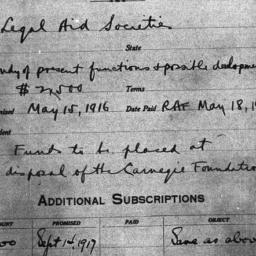 Legal Aid Societies
State
study of present functions & possible developmen
$ 2,500 Terms
mised May 15, 1916 Date Paid RAF May 18, 1
dent
Funds to be placed at
disposal of the Carnegie Foundation
ADDITIONAL SUBSCRIPTIONS
OUNT PROMISED PAID OBJECT
00 Sept 14, 1917 Same as abov